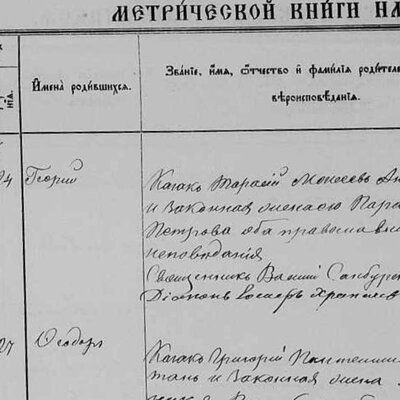 МЕТРИ́ЧЕСКОЙ КНИ́ГИ НА
Имена̀ роди́вшихся.
Зва́нїе, и́мя, ѻ҆́тчество и҆ фами́лїя роди́теле
вѣроисповѣ́данїя.
4 Георгій
Казакъ Тарасій Моисеевъ
и законная жена его Пара
Петрова оба православн
исповѣданія
Священникъ Василій
Діаконъ Іосифъ
27 Ѳеодоръ
Казакъ Григорій Пантелеим
и законная жена